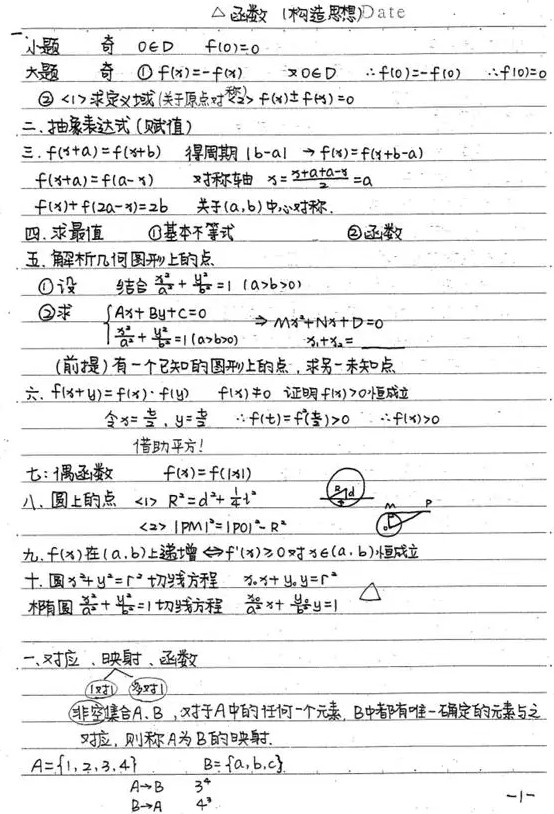 △函数 (构造思想) Date
一、
小题 奇 0∈D f(0)=0
大题 奇 ① f(x)=-f(x) 又0∈D ∴f(0)=-f(0) ∴f(0)=0
② <1>求定义域(关于原点对称) <2> f(x)±f(-x)=0
二、抽象表达式(赋值)
三、f(x+a)=f(x+b) 得周期 |b-a| → f(x)=f(x+b-a)
f(x+a)=f(a-x) 对称轴 x=(x+a+a-x)/2=a
f(x)+f(2a-x)=2b 关于(a,b)中心对称.
四、求最值 ①基本不等式 ②函数
五、解析几何图形上的点
①设 结合 x²/a²+y²/b²=1 (a>b>0)
②求 { Ax+By+C=0
x²/a²+y²/b²=1 (a>b>0) ⇒ Mx²+Nx+D=0
x₁+x₂=____
(前提)有一个已知的图形上的点,求另一未知点
六、f(x+y)=f(x)·f(y) f(x)≠0 证明f(x)>0恒成立
令x=t/2, y=t/2 ∴f(t)=f²(t/2)>0 ∴f(x)>0
借助平方!
七:偶函数 f(x)=f(|x|)
八、圆上的点 <1> R²=d²+¼l² R d
<2> |PM|²=|PO|²-R² M P O
九、f(x)在(a,b)上递增⇔f'(x)≥0对x∈(a,b)恒成立
十、圆x²+y²=r²切线方程 x₀x+y₀y=r²
椭圆 x²/a²+y²/b²=1切线方程 x₀/a² x+y₀/b² y=1 △
一、对应、映射、函数
1对1 多对1
非空集合A、B,对于A中的任何一个元素,B中都有唯一确定的元素与之
对应,则称A为B的映射.
A={1,2,3,4} B={a,b,c}
A→B 3⁴
B→A 4³
-1-